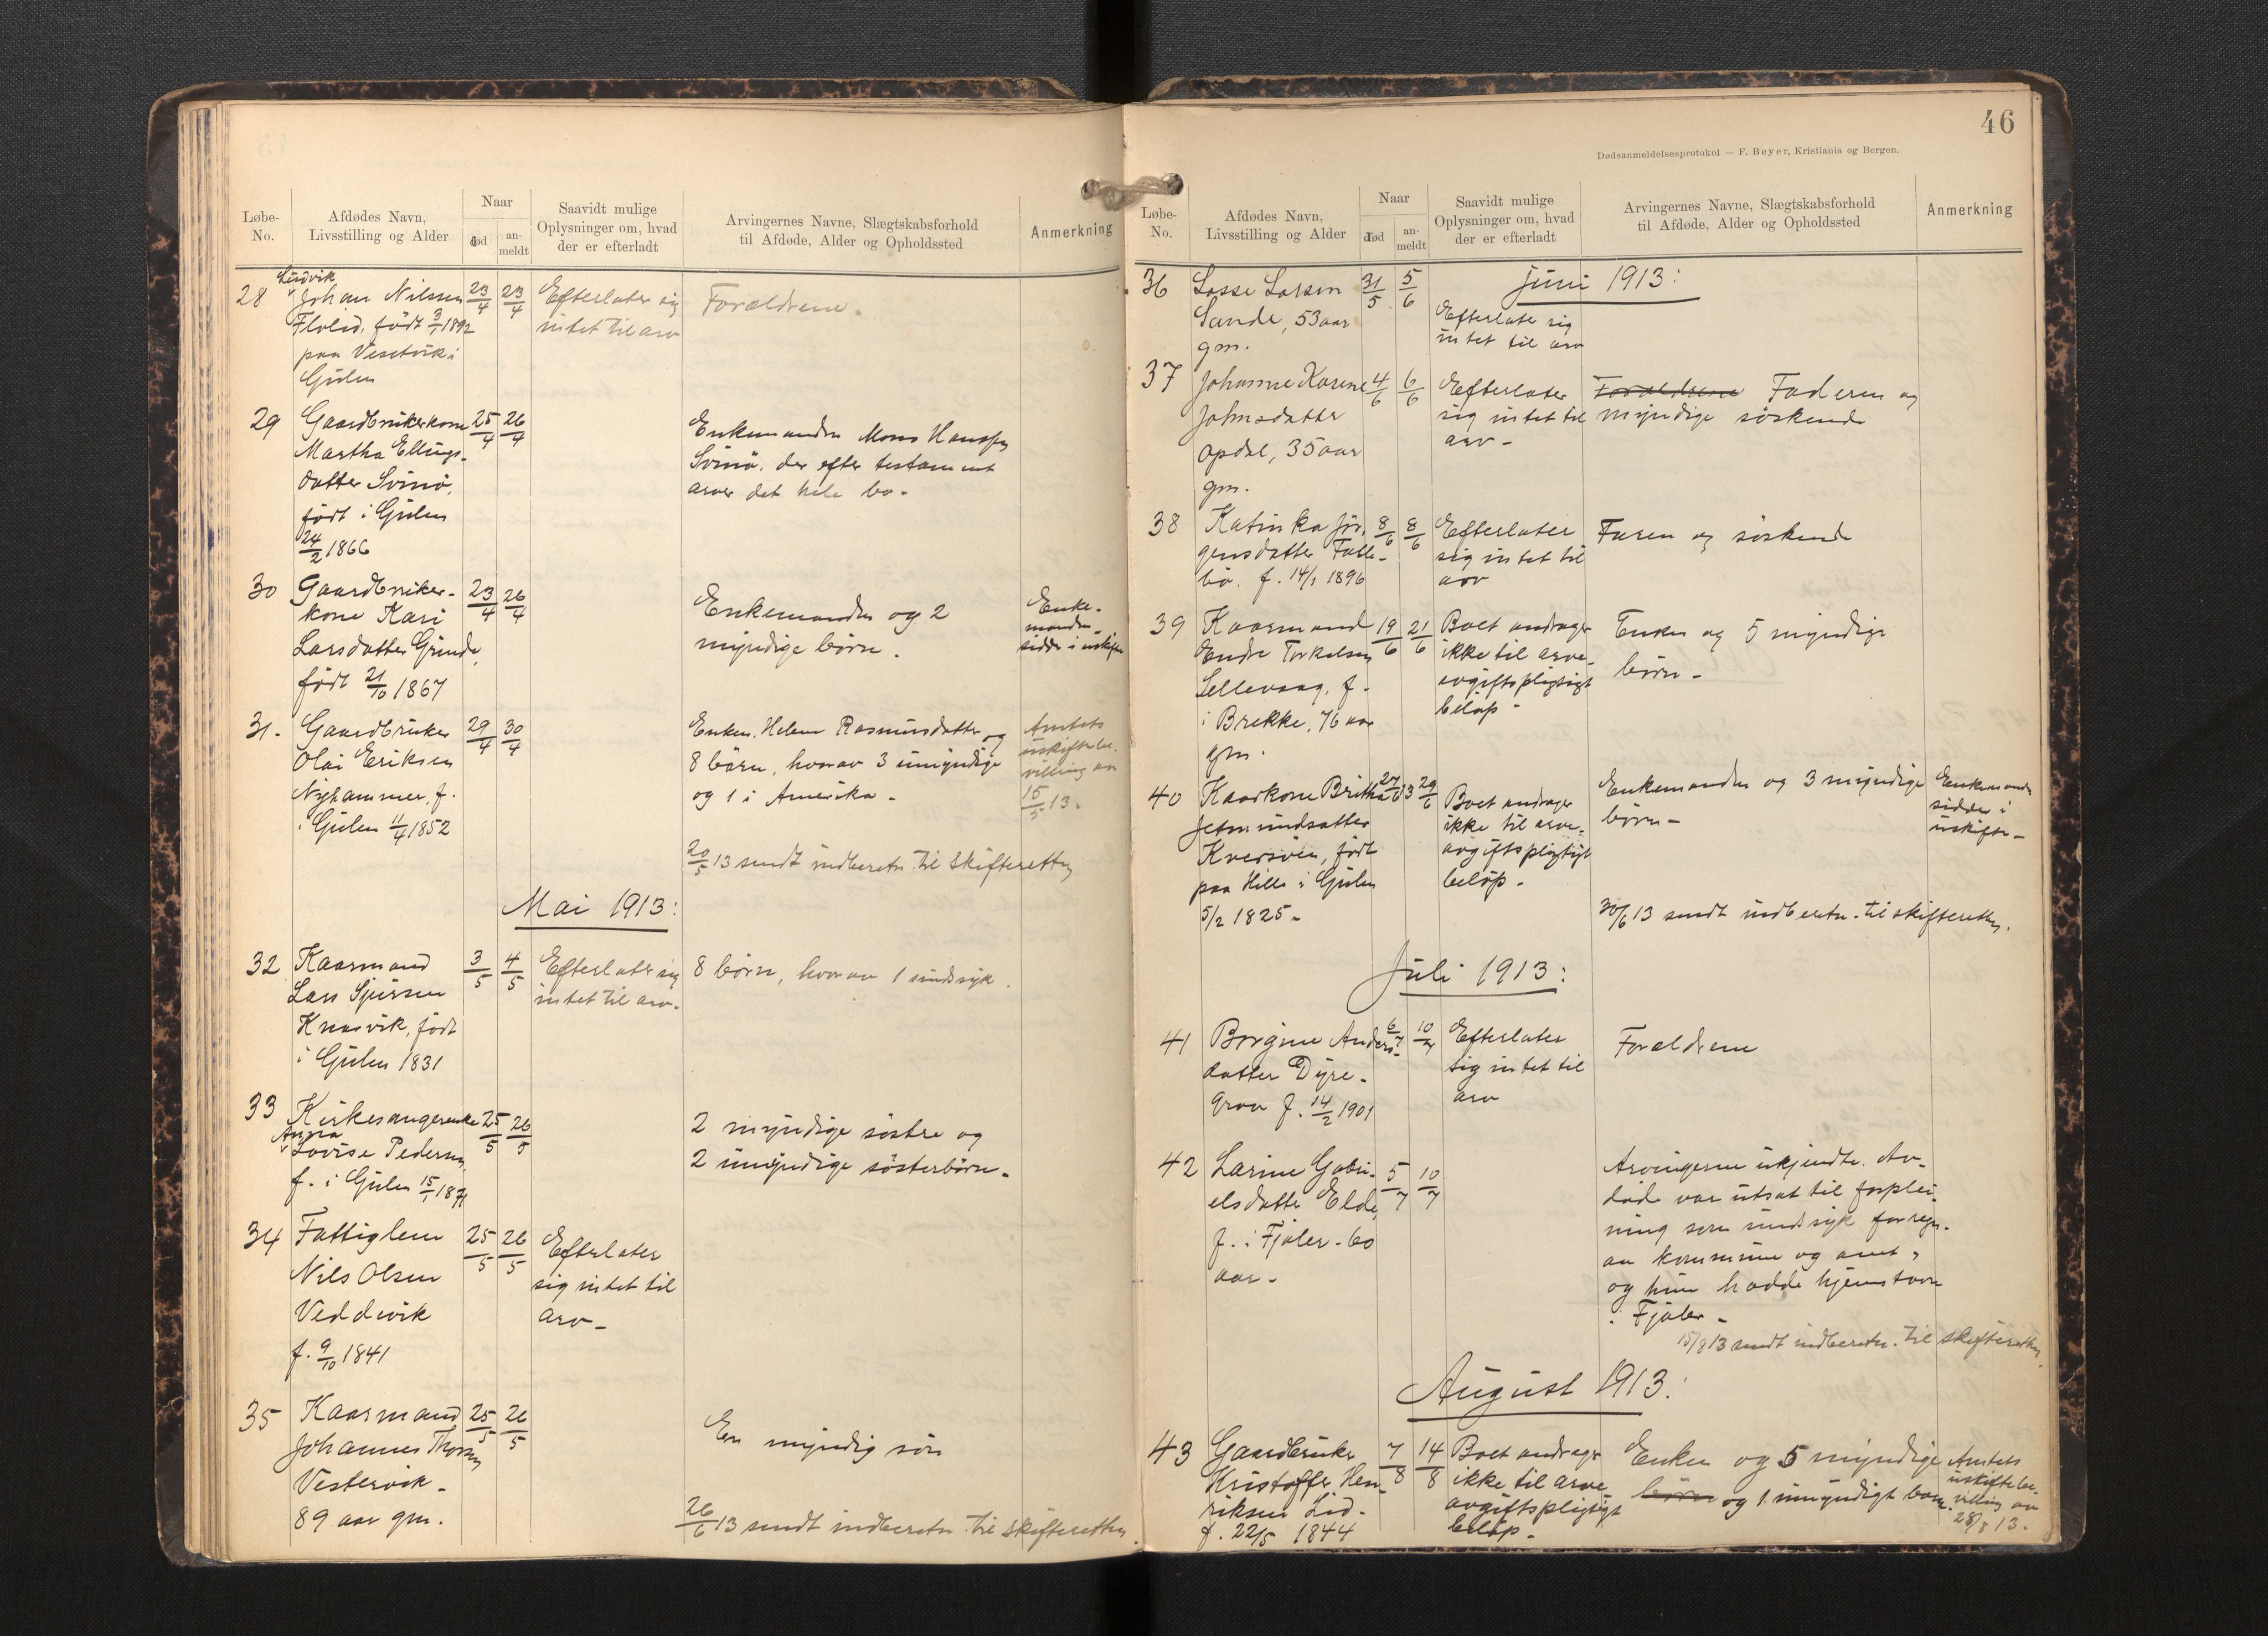 Løbe-No.
Afdødes Navn, Livsstilling og Alder
Naar
død
an-meldt
Saavidt mulige Oplysninger om, hvad der er efterladt
Arvingernes Navne, Slægtskabsforhold til Afdøde, Alder og Opholdssted
Anmerkning
28
Ludvik
Johan Nilssen
Flolid, født 3/1 1892
paa
Gulen
23/4
23/4
Efterlater sig
intet til arv
Forældrene.
29
Gaardbrukerkone
Martha Ellings-
datter Svinø,
født i Gulen
24/2 1866
25/4
26/4
Enkemanden Mons Hanssen
Svinø, der efter testament
arver det hele bo.
30
Gaardbruker-
kone Kari
Larsdatter Grinde,
født 21/10 1867
23/4
26/4
Enkemanden og 2
myndige børn.
Enke-
manden
sidder i uskifte
31.
Gaardbruker
Olai Eriksen
Nyhammer, f.
i Gulen 11/4 1852
29/4
30/4
Enken, Helene Rasmusdatter og
8 børn, hvorav 3 umyndige
og 1 i Amerika.
Amtets
uskiftebe-
villing av
15/5 13.
20/5 13 sendt indberetn. til skifteretten
Mai 1913:
32
Kaarmand
Lars Sjursen
Knarvik, født
i Gulen 1831
3/5
4/5
Efterlater sig
intet til arv.
8 børn, hvorav 1 sindsyk.
33
Kirkesangerenke
Anna
Lovise Pedersen,
f. i Gulen 15/1 1871
25/5
26/5
2 myndige søstre og
2 umyndige søsterbørn.
34
Fattiglem
Nils Olsen
Veddevik
f. 9/10 1841
25/5
26/5
Efterlater
sig intet til
arv.
35
Kaarmand
Johannes Thorsen
Vestervik.
89 aar gm.
25/5
26/5
En myndig søn
26/6 13 sendt indberetn. til skifteretten.
46
Dødsanmeldelsesprotokol — F. Beyer, Kristiania og Bergen.
Løbe-No.
Afdødes Navn, Livsstilling og Alder
Naar
død
an-meldt
Saavidt mulige Oplysninger om, hvad der er efterladt
Arvingernes Navne, Slægtskabsforhold til Afdøde, Alder og Opholdssted
Anmerkning
Juni 1913:
36
Lasse Larsen
Sande, 53 aar
gm.
31/5
5/6
Efterlater sig
intet til arv
37
Johanne Karine
Johnsdatter
Opdal, 35 aar
gm.
4/6
6/6
Efterlater
sig intet til
arv.
Forældrene Faderen og
myndige søskende
38
Katinka Jør-
gensdatter Falle-
bø. f. 14/1 1896
8/6
8/6
Efterlater
sig intet til
arv
Faren og søskende
39
Kaarmand
Endre Torkelsen
Sellevaag, f.
i Brekke, 76 aar
gm.
19/6
21/6
Boet andrager
ikke til arve-
avgiftspligtigt
beløp.
Enken og 5 myndige
børn.
40
Kaarkone Britha
Jetmundsdatter
Kversøen, født
paa Hille i Gulen
5/2 1825.
27/6 13
29/6
Boet andrager
ikke til arve-
avgiftspligtigt
beløp.
Enkemanden og 3 myndige
børn.
Enkemanden
sidder i
uskifte.
30/6 13 sendt indberetn. til skifteretten.
Juli 1913:
41
Borgine Anders-
datter Dyre-
grov f. 14/2 1901
6/7
10/7
Efterlater
sig intet til
arv
Forældrene
42
Larine Gabri-
elsdatter Elde,
f. i Fjaler. 60
aar.
5/7
10/7
Arvingerne ukjendte. Av-
død var utsat til forplei-
ning som sindsyk for regn.
av kommune og amt,
og hun hadde hjemstavn
i Fjaler.
15/8 13 sendt indberetn. til skifteretten.
August 1913:
43
Gaardbruker
Kristoffer Hen-
riksen Lid.
f. 22/5 1844
7/8
14/8
Boet andrager
ikke til arve-
avgiftspligtigt
beløp.
Enken og 5 myndige
børn og 1 umyndigt barn.
Amtets
uskiftebe-
villing av
28/8 13.